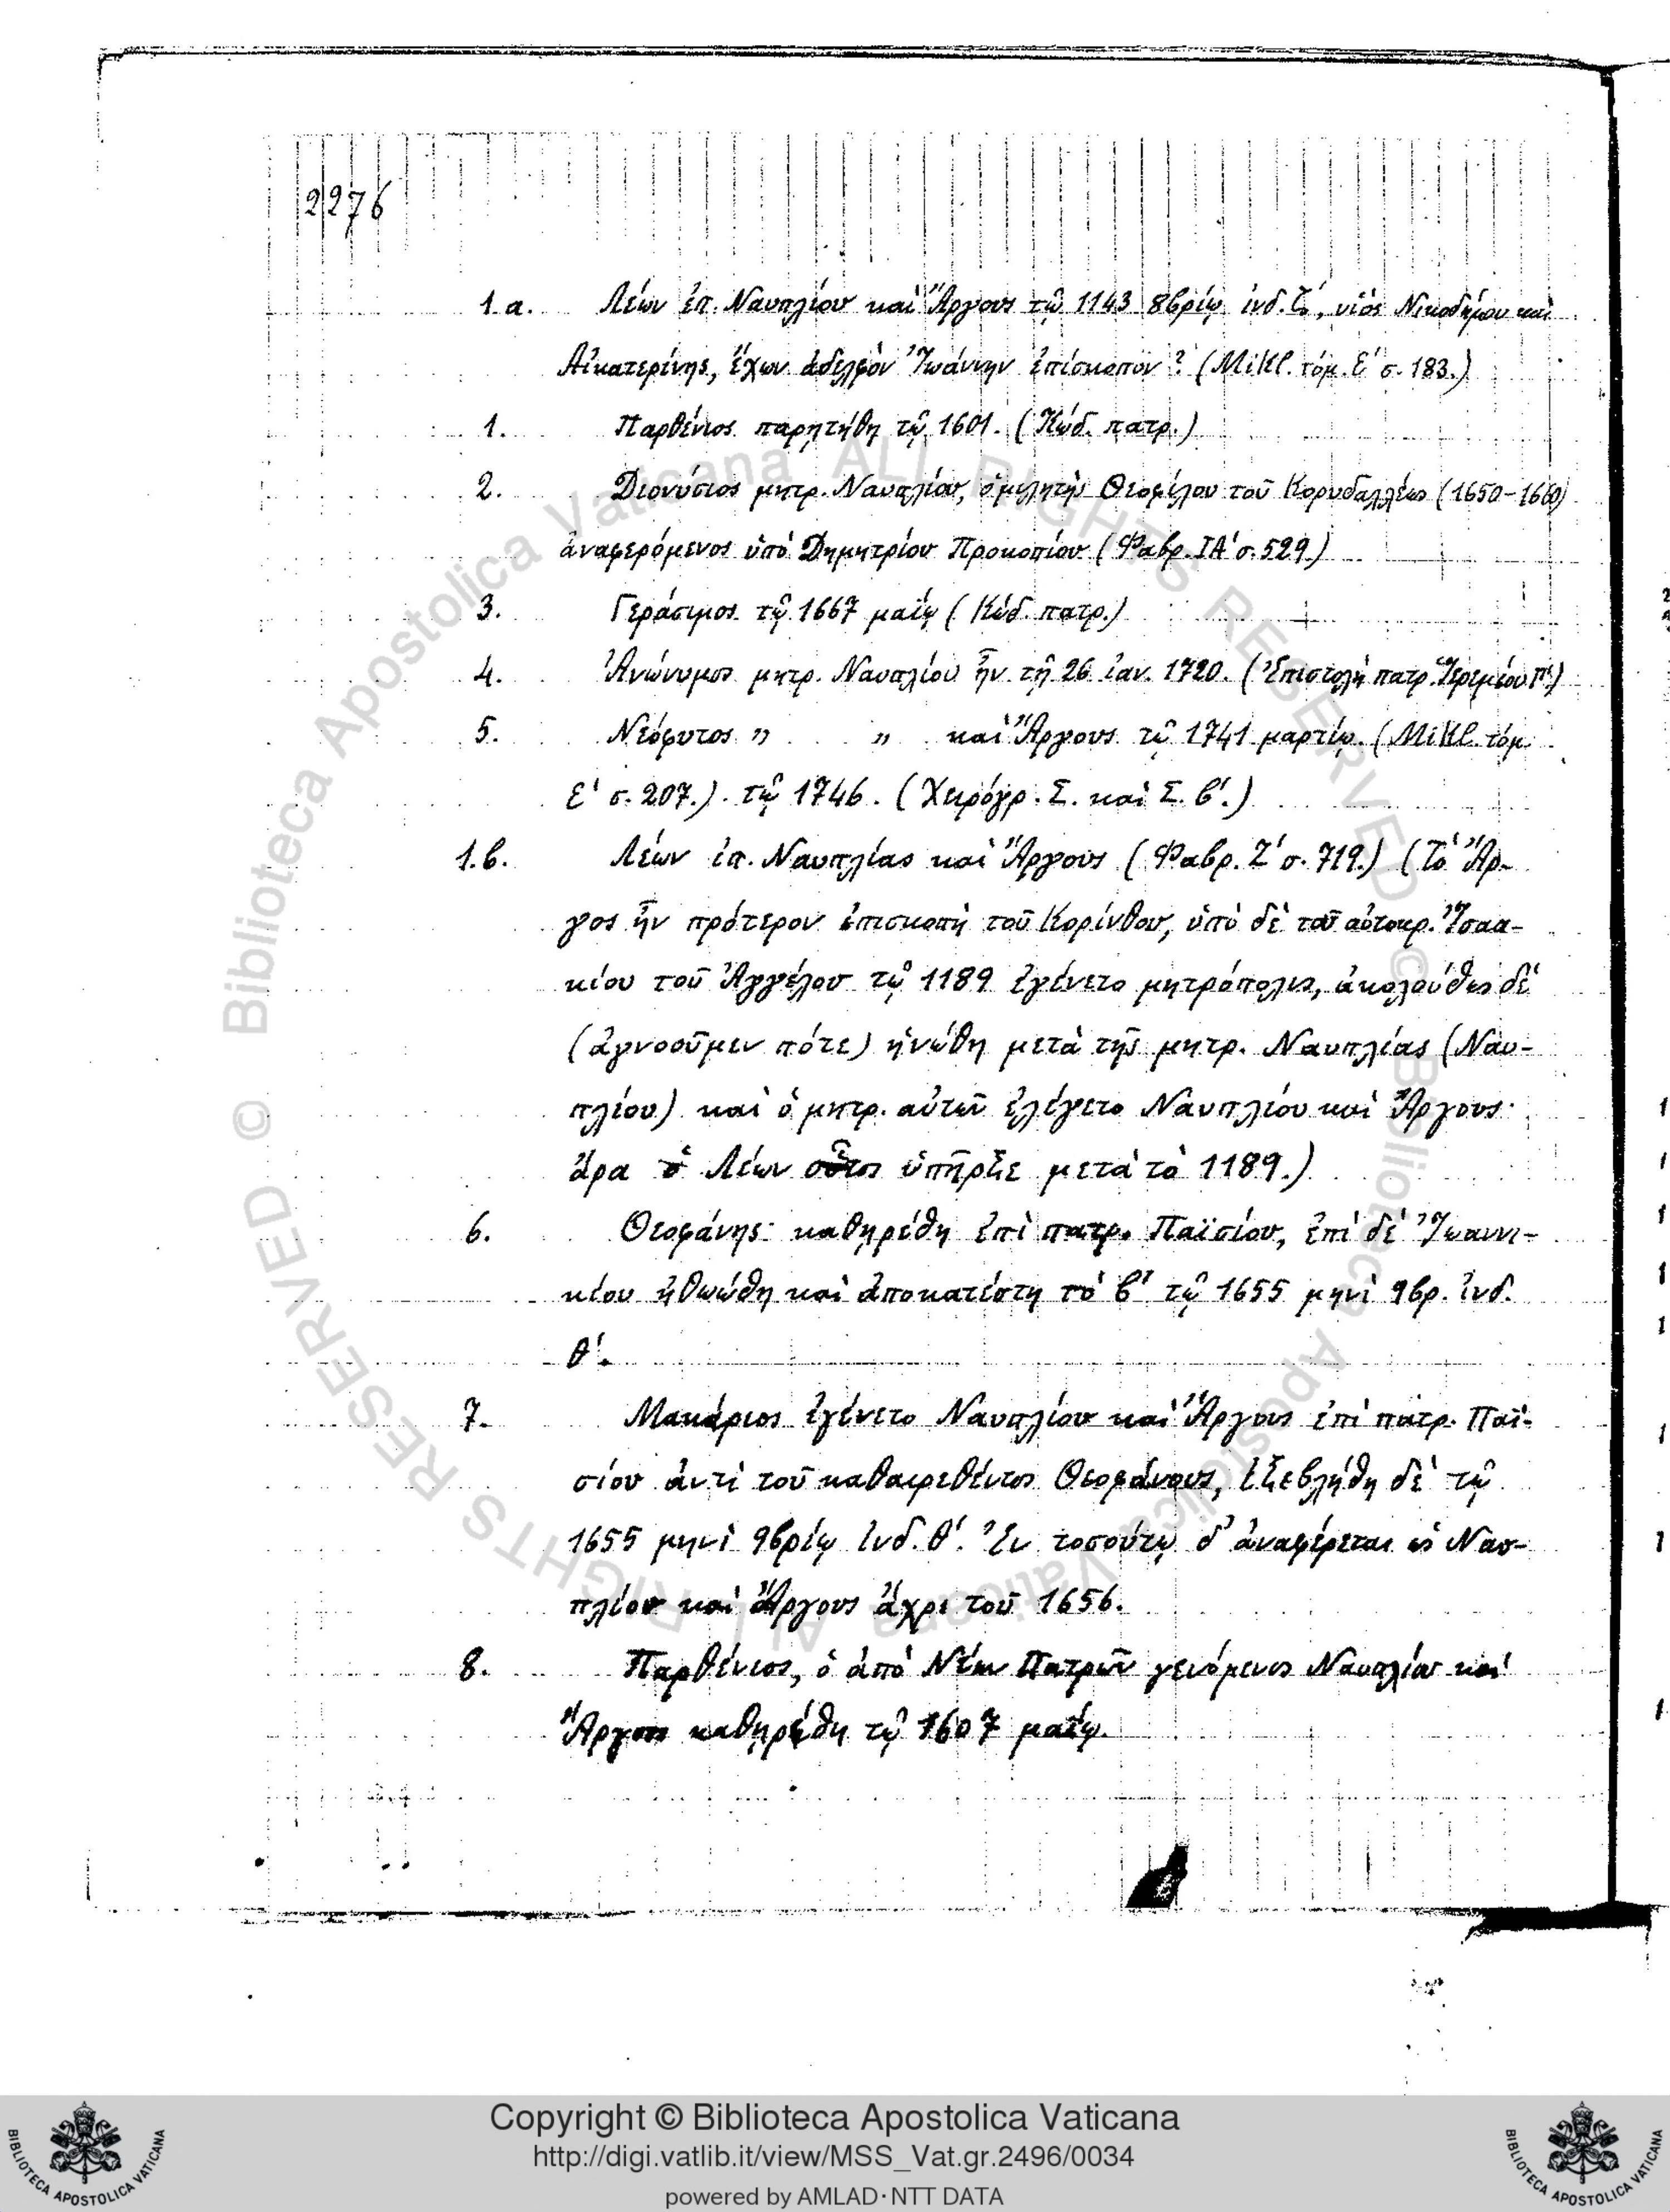 2276
1.α. Λέων ἐπ. Ναυπλίου καὶ Ἄργους τῷ 1143 8βρίῳ ἰνδ. ζ΄, υἱὸς Νικοδήμου καὶ
Αἰκατερίνης, ἔχων ἀδελφὸν Ἰωάννην ἐπίσκοπον? (Mikl. τόμ. Ε΄ σ. 183.)
1. Παρθένιος παρῃτήθη τῷ 1601. (Κώδ. πατρ.)
2. Διονύσιος μητρ. Ναυπλίου, ὁμιλητὴς Θεοφίλου τοῦ Κορυδαλλέως (1650-1660)
ἀναφερόμενος ὑπὸ Δημητρίου Προκοπίου (Φαβρ. ΙΑ΄ σ. 529.)
3. Γεράσιμος τῷ 1667 μαΐῳ (Κώδ. πατρ.)
4. Ἀνώνυμος μητρ. Ναυπλίου ἦν τῇ 26 ἰαν. 1720. (Ἐπιστολὴ πατρ. Ἱερεμίου Γ΄)
5. Νεόφυτος „ „ καὶ Ἄργους τῷ 1741 μαρτίῳ. (Mikl. τόμ.
Ε΄ σ. 207.). τῷ 1746. (Χειρόγρ. Σ. καὶ Σ. β΄.)
1.β. Λέων ἐπ. Ναυπλίας καὶ Ἄργους (Φαβρ. Ζ΄ σ. 719.) (Τὸ Ἄρ-
γος ἦν πρότερον ἐπισκοπὴ τοῦ Κορίνθου, ὑπὸ δὲ τοῦ αὐτοκρ. Ἰσαα-
κίου τοῦ Ἀγγέλου τῷ 1189 ἐγένετο μητρόπολις, ἀκολούθως δὲ
(ἀγνοοῦμεν πότε) ἡνώθη μετὰ τῆς μητρ. Ναυπλίας (Ναυ-
πλίου) καὶ ὁ μητρ. αὐτῶν ἐλέγετο Ναυπλίου καὶ Ἄργους·
ἄρα ὁ Λέων οὗτος ὑπῆρξε μετὰ τὸ 1189.)
6. Θεοφάνης· καθῃρέθη ἐπὶ πατρ. Παϊσίου, ἐπὶ δὲ Ἰωαννι-
κίου ἠθωώθη καὶ ἀποκατέστη τὸ β΄ τῷ 1655 μηνὶ 9βρ. ἰνδ.
θ΄.
7. Μακάριος ἐγένετο Ναυπλίου καὶ Ἄργους ἐπὶ πατρ. Παϊ-
σίου ἀντὶ τοῦ καθαιρεθέντος Θεοφάνους, ἐξεβλήθη δὲ τῷ
1655 μηνὶ 9βρίῳ ἰνδ. θ΄. Ἐν τοσούτῳ δ' ἀναφέρεται ὡς Ναυ-
πλίου καὶ Ἄργους ἄχρι τοῦ 1656.
8. Παρθένιος, ὁ ἀπὸ Νέων Πατρῶν γενόμενος Ναυπλίου καὶ
Ἄργους καθῃρέθη τῷ 1607 μαΐῳ.
© Biblioteca Apostolica Vaticana ALL RIGHTS RESERVED
© Biblioteca Apostolica Vaticana ALL RIGHTS RESERVED
Copyright © Biblioteca Apostolica Vaticana
http://digi.vatlib.it/view/MSS_Vat.gr.2496/0034
powered by AMLAD·NTT DATA
BIBLIOTECA APOSTOLICA VATICANA
BIBLIOTECA APOSTOLICA VATICANA